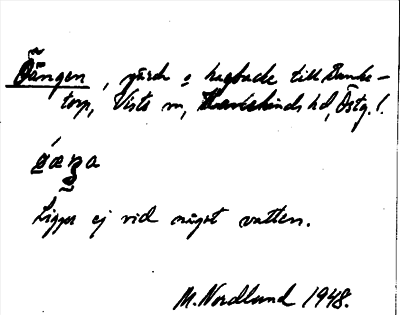 Öängen, gärde o hagbacke till Banke-
torp, Vists sn, Hanekinds hd, Östg.l.
Ligger ej vid något vatten.
M. Nordlund 1948.